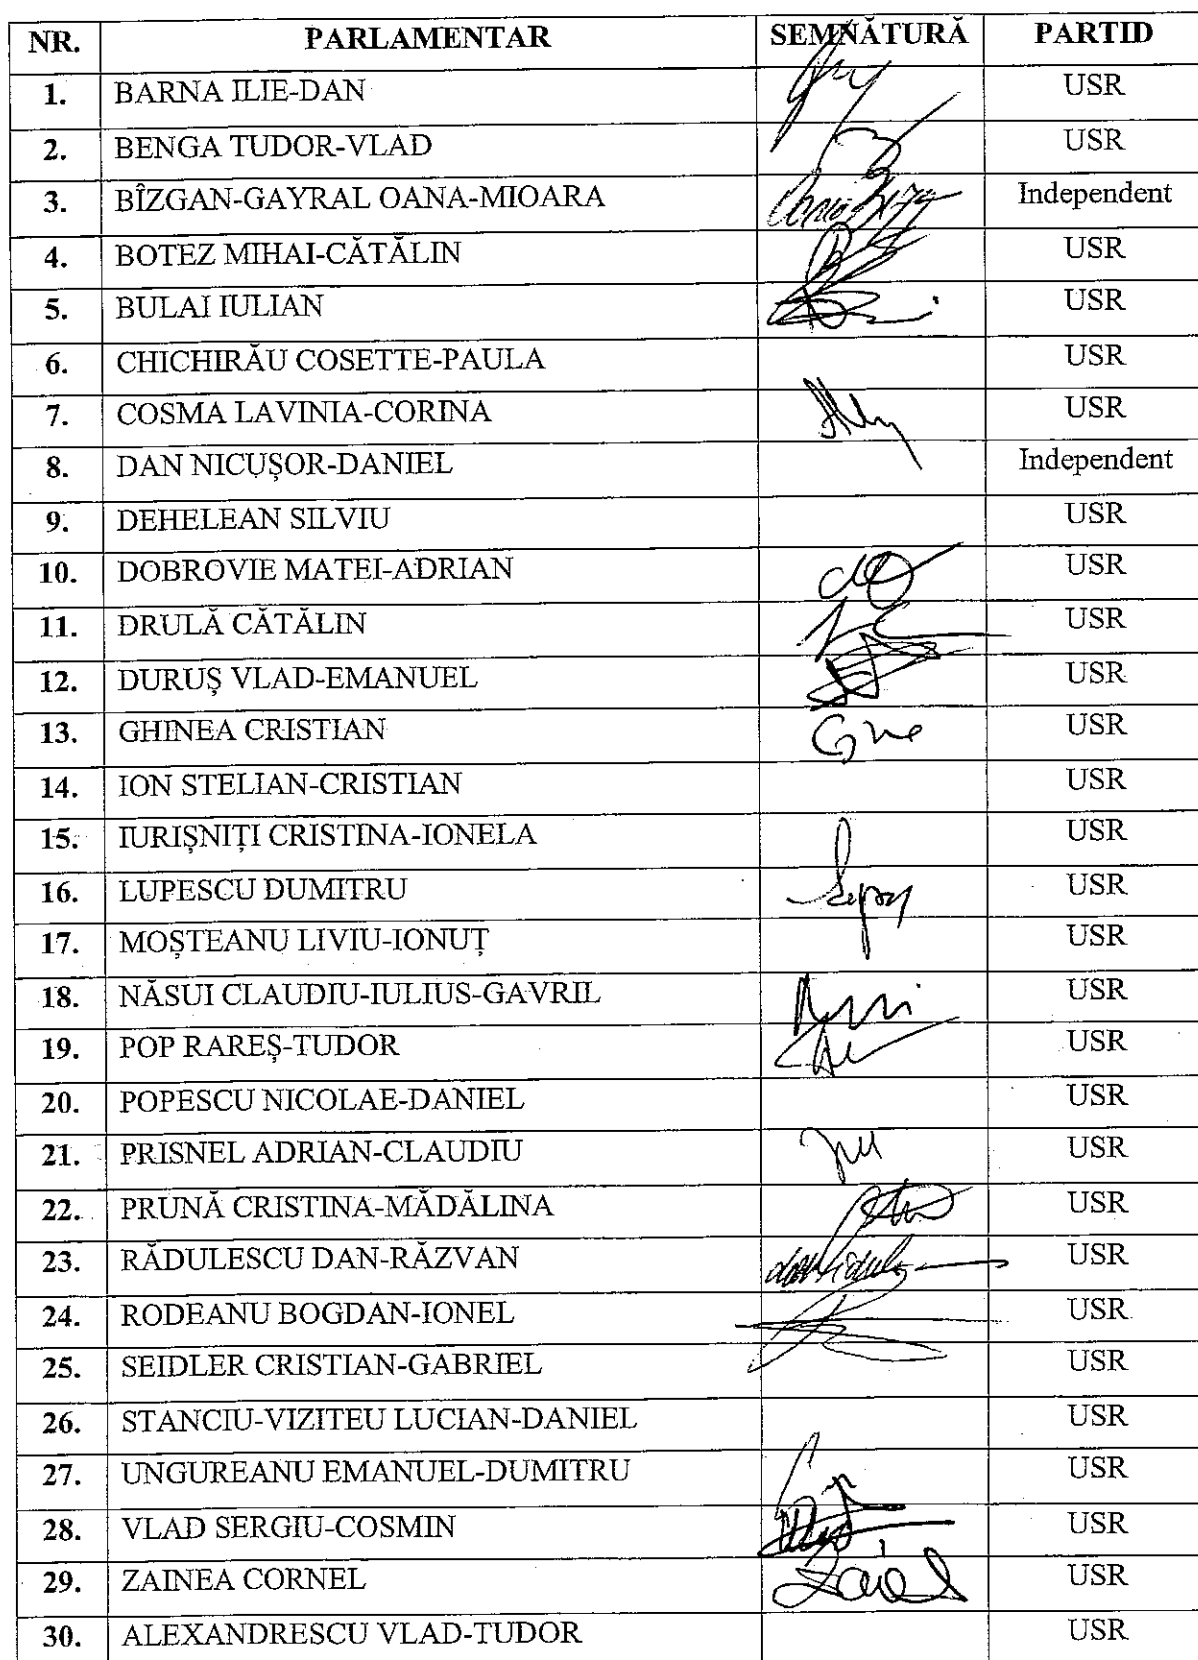 NR. PARLAMENTAR SEMNĂTURĂ PARTID
1. BARNA ILIE-DAN USR
2. BENGA TUDOR-VLAD USR
3. BÎZGAN-GAYRAL OANA-MIOARA Independent
4. BOTEZ MIHAI-CĂTĂLIN USR
5. BULAI IULIAN USR
6. CHICHIRĂU COSETTE-PAULA USR
7. COSMA LAVINIA-CORINA USR
8. DAN NICUȘOR-DANIEL Independent
9. DEHELEAN SILVIU USR
10. DOBROVIE MATEI-ADRIAN USR
11. DRULĂ CĂTĂLIN USR
12. DURUȘ VLAD-EMANUEL USR
13. GHINEA CRISTIAN USR
14. ION STELIAN-CRISTIAN USR
15. IURIȘNIȚI CRISTINA-IONELA USR
16. LUPESCU DUMITRU USR
17. MOȘTEANU LIVIU-IONUȚ USR
18. NĂSUI CLAUDIU-IULIUS-GAVRIL USR
19. POP RAREȘ-TUDOR USR
20. POPESCU NICOLAE-DANIEL USR
21. PRISNEL ADRIAN-CLAUDIU USR
22. PRUNĂ CRISTINA-MĂDĂLINA USR
23. RĂDULESCU DAN-RĂZVAN USR
24. RODEANU BOGDAN-IONEL USR
25. SEIDLER CRISTIAN-GABRIEL USR
26. STANCIU-VIZITEU LUCIAN-DANIEL USR
27. UNGUREANU EMANUEL-DUMITRU USR
28. VLAD SERGIU-COSMIN USR
29. ZAINEA CORNEL USR
30. ALEXANDRESCU VLAD-TUDOR USR